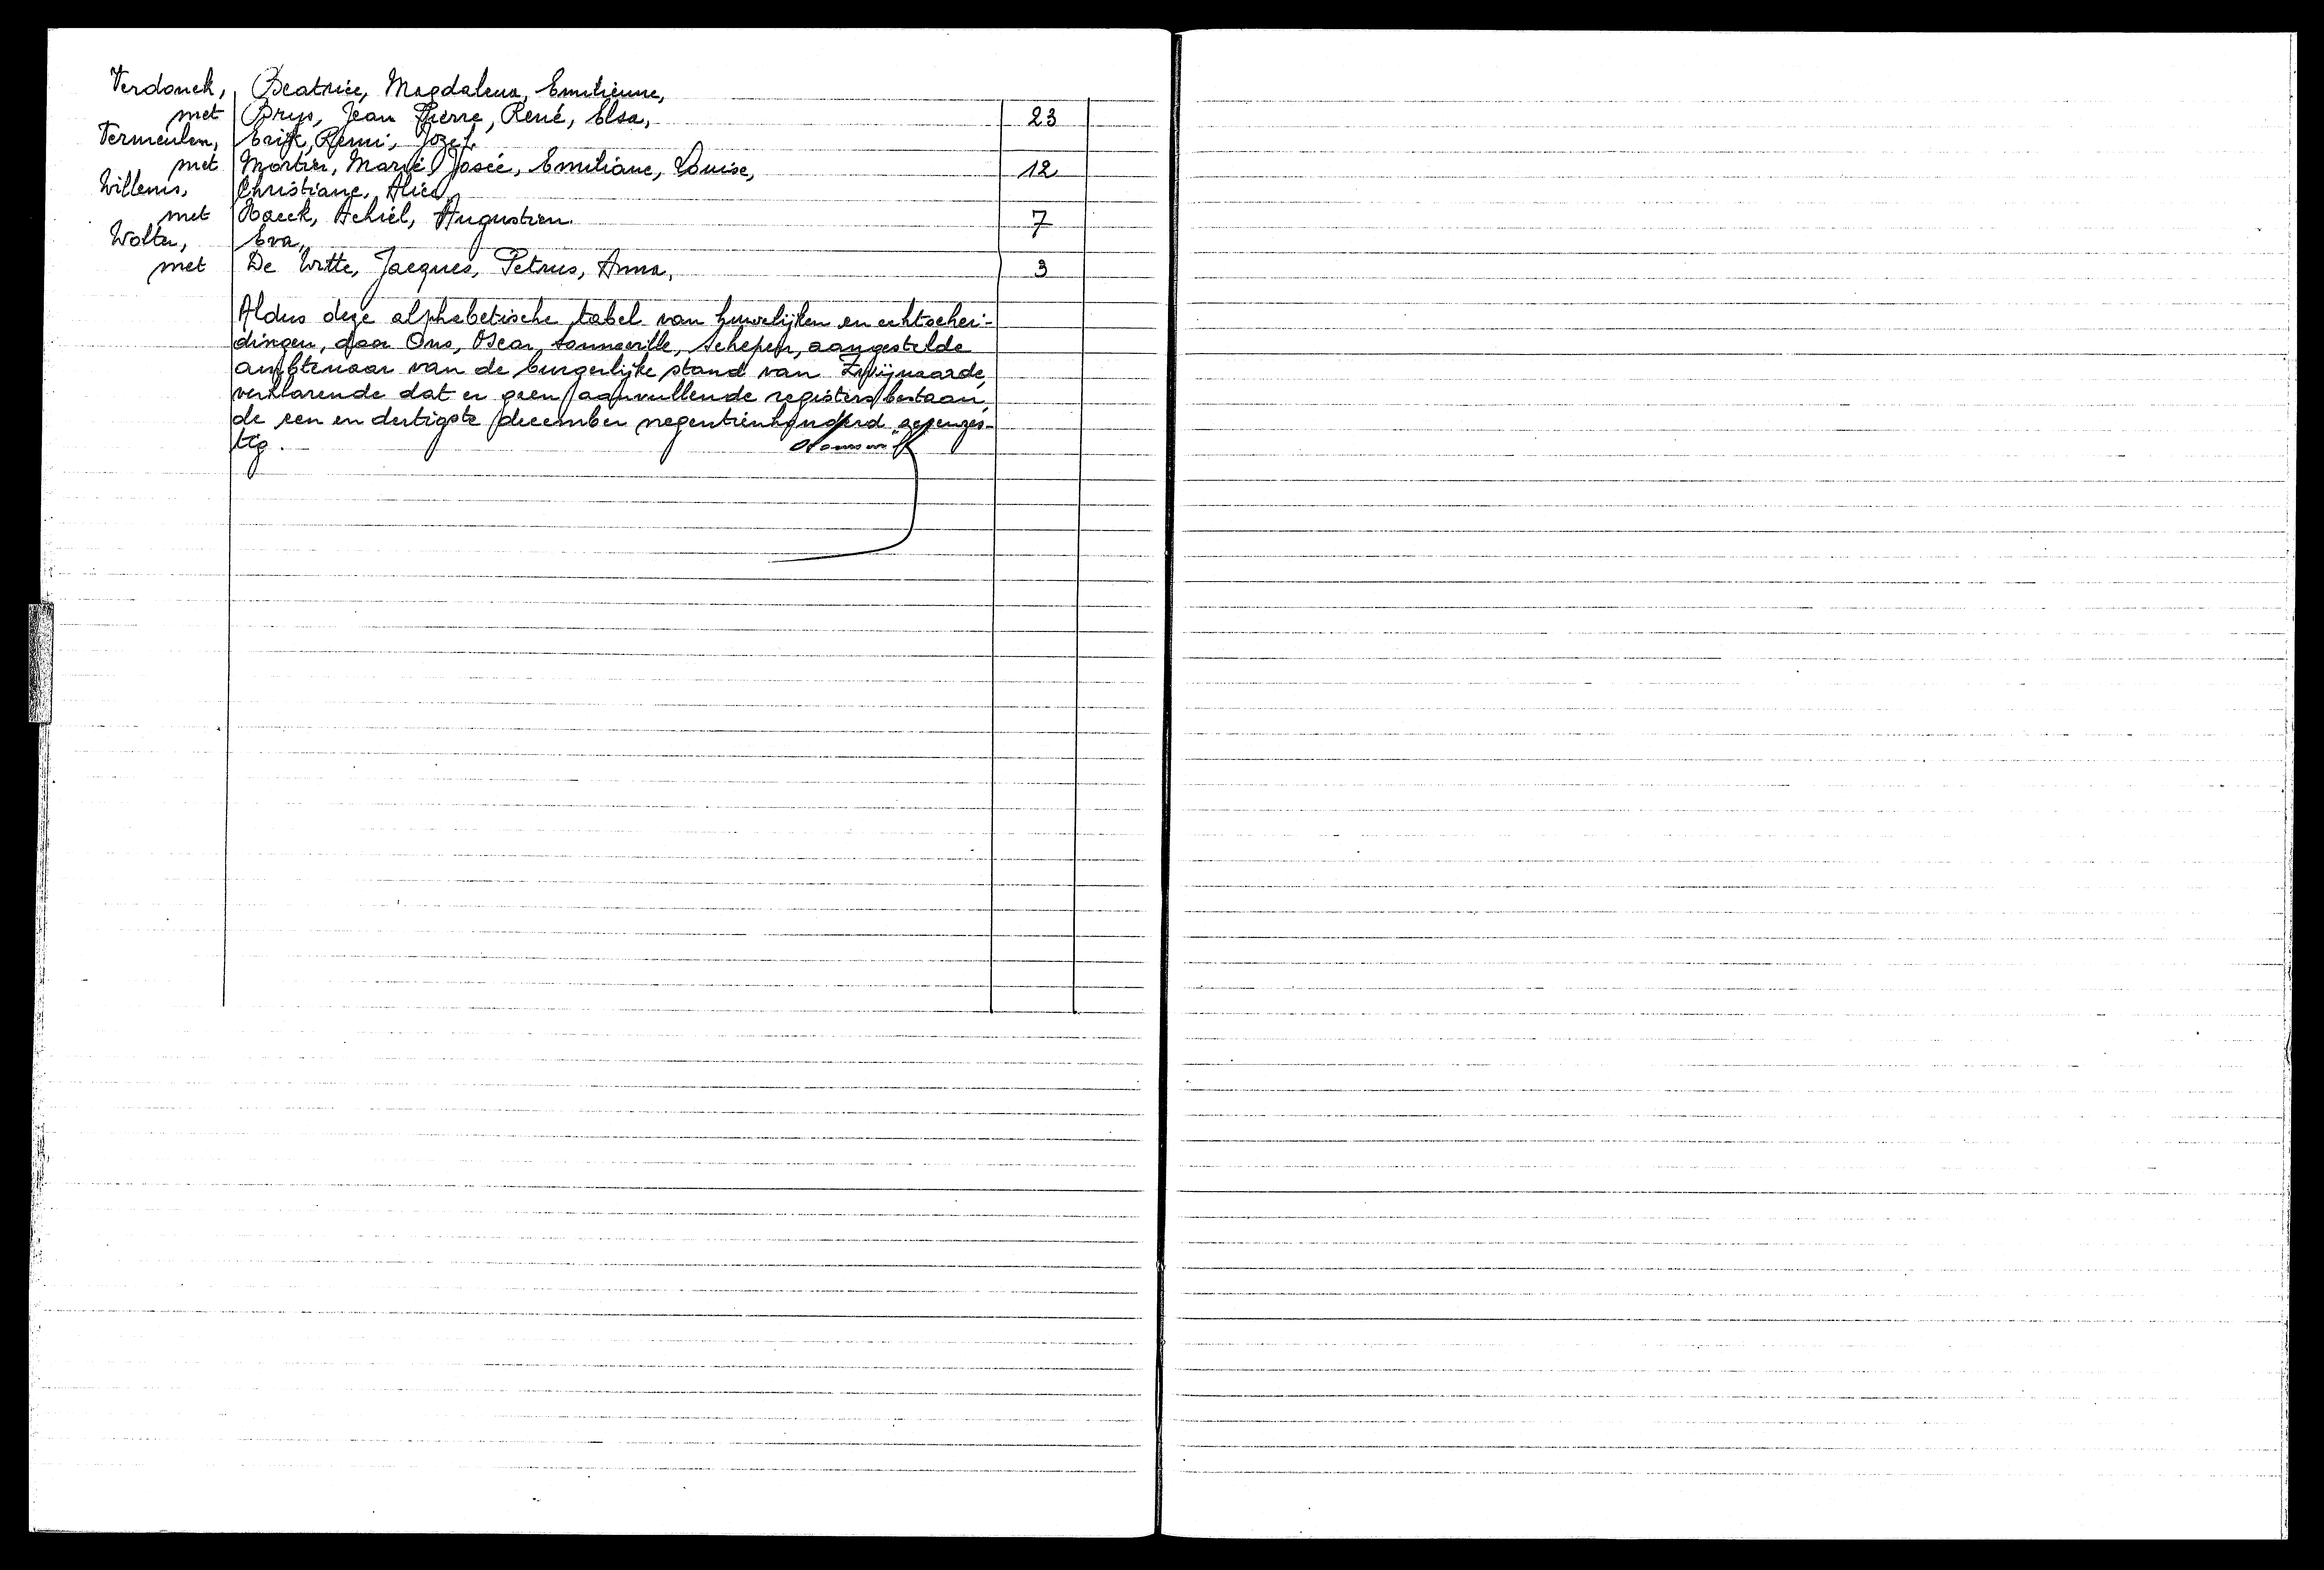 Verdonck, Beatrice, Magdalena, Emilienne,
met Brys, Jean Pierre, René, Elsa, 23
Vermeulen, Erik, Remi, Jozef.
met Mortier, Marie Josée, Emiliane, Louise, 12
Willems, Christiane, Alice,
met Haeck, Achiel, Augustien. 7
Wolter, Eva,
met De Witte, Jacques, Petrus, Anna, 3
Aldus deze alphabetische tabel van huwelijken en echtschei-
dingen, door Ons, Oscar Sonneville, Schepen, aangestelde
ambtenaar van de burgerlijke stand van Zwijnaarde,
verklarende dat er geen aanvullende registers bestaan,
de een en dertigste december negentienhonderd zevenzes-
tig.